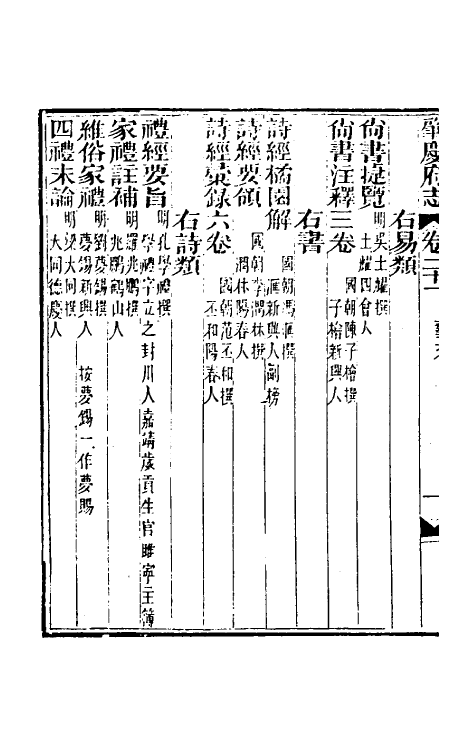 肇慶府志 卷二十一 藝文 一
右易類
尚書提覽 明吳士耀撰士耀四會人
尚書注釋三卷 國朝陳子檜撰子檜新興人
右書
詩經橋園解 國朝馮匯撰匯新興人副榜
詩經要領 國朝李潤林撰潤林陽春人
詩經彙錄六卷 國朝范丕和撰丕和陽春人
右詩類
禮經要旨 明孔學禮撰學禮字立之封川人嘉靖歲貢生官睢寧主簿
家禮註補 明羅兆鵬撰兆鵬鶴山人
維俗家禮 明劉夢錫撰夢錫新興人 按夢錫一作夢賜
四禮未論 明梁大同撰大同德慶人